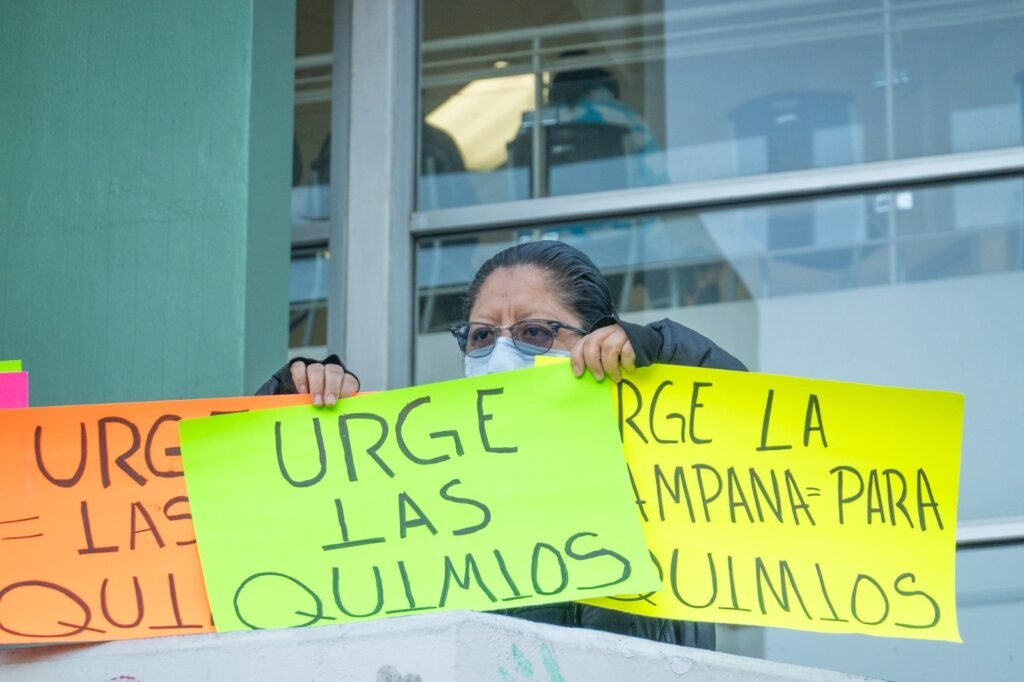 URGE
= LAS
QUI
URGE
LAS
QUIMIOS
RGE LA
AMPANA= PARA
QUIMIOS